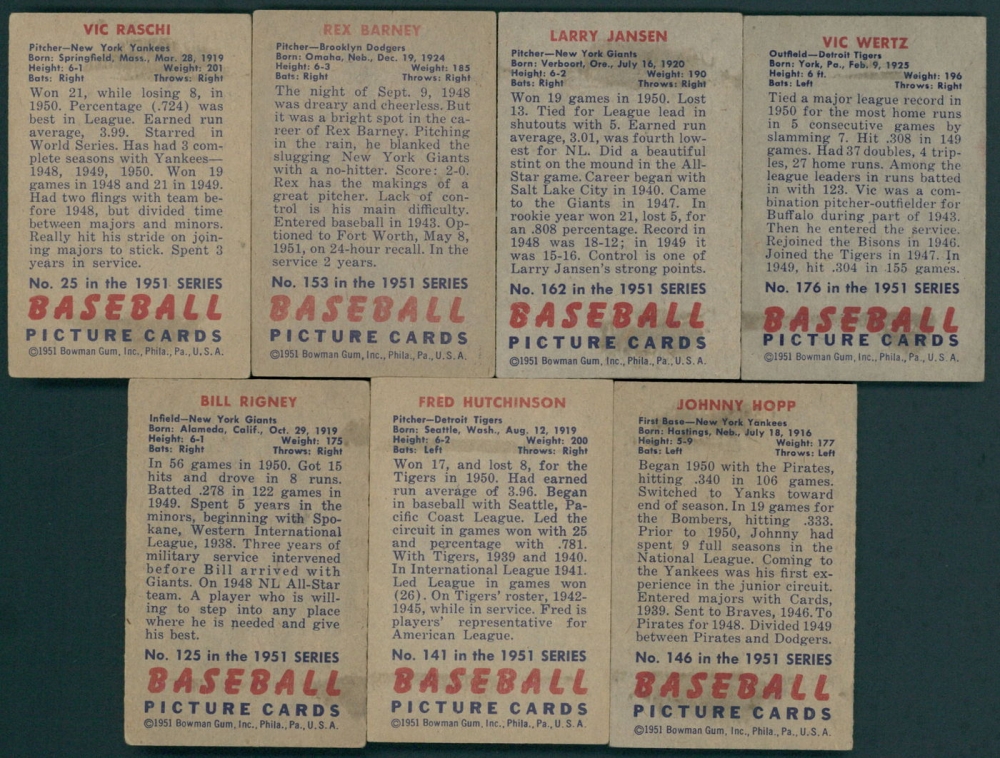 VIC RASCHI
Pitcher—New York Yankees
Born: Springfield, Mass., Mar. 28, 1919
Height: 6-1 Weight: 201
Bats: Right Throws: Right
Won 21, while losing 8, in
1950. Percentage (.724) was
best in League. Earned run
average, 3.99. Starred in
World Series. Has had 3 com-
plete seasons with Yankees—
1948, 1949, 1950. Won 19
games in 1948 and 21 in 1949.
Had two flings with team be-
fore 1948, but divided time
between majors and minors.
Really hit his stride on join-
ing majors to stick. Spent 3
years in service.
No. 25 in the 1951 SERIES
BASEBALL
PICTURE CARDS
©1951 Bowman Gum, Inc., Phila., Pa., U.S.A.
REX BARNEY
Pitcher—Brooklyn Dodgers
Born: Omaha, Neb., Dec. 19, 1924
Height: 6-3 Weight: 185
Bats: Right Throws: Right
The night of Sept. 9, 1948
was dreary and cheerless. But
it was a bright spot in the ca-
reer of Rex Barney. Pitching
in the rain, he blanked the
slugging New York Giants
with a no-hitter. Score: 2-0.
Rex has the makings of a
great pitcher. Lack of con-
trol is his main difficulty.
Entered baseball in 1943. Op-
tioned to Fort Worth, May 8,
1951, on 24-hour recall. In the
service 2 years.
No. 153 in the 1951 SERIES
BASEBALL
PICTURE CARDS
©1951 Bowman Gum, Inc., Phila., Pa., U.S.A.
LARRY JANSEN
Pitcher—New York Giants
Born: Verboort, Ore., July 16, 1920
Height: 6-2 Weight: 190
Bats: Right Throws: Right
Won 19 games in 1950. Lost
13. Tied for League lead in
shutouts with 5. Earned run
average, 3.01, was fourth low-
est for NL. Did a beautiful
stint on the mound in the All-
Star game. Career began with
Salt Lake City in 1940. Came
to the Giants in 1947. In
rookie year won 21, lost 5, for
an .808 percentage. Record in
1948 was 18-12; in 1949 it
was 15-16. Control is one of
Larry Jansen's strong points.
No. 162 in the 1951 SERIES
BASEBALL
PICTURE CARDS
©1951 Bowman Gum, Inc., Phila., Pa., U.S.A.
VIC WERTZ
Outfield—Detroit Tigers
Born: York, Pa., Feb. 9, 1925
Height: 6 ft. Weight: 196
Bats: Left Throws: Right
Tied a major league record in
1950 for the most home runs
in 5 consecutive games by
slamming 7. Hit .308 in 149
games. Had 37 doubles, 4 trip-
les, 27 home runs. Among the
league leaders in runs batted
in with 123. Vic was a com-
bination pitcher-outfielder for
Buffalo during part of 1943.
Then he entered the service.
Rejoined the Bisons in 1946.
Joined the Tigers in 1947. In
1949, hit .304 in 155 games.
No. 176 in the 1951 SERIES
BASEBALL
PICTURE CARDS
©1951 Bowman Gum, Inc., Phila., Pa., U.S.A.
BILL RIGNEY
Infield—New York Giants
Born: Alameda, Calif., Oct. 29, 1919
Height: 6-1 Weight: 175
Bats: Right Throws: Right
In 56 games in 1950. Got 15
hits and drove in 8 runs.
Batted .278 in 122 games in
1949. Spent 5 years in the
minors, beginning with Spo-
kane, Western International
League, 1938. Three years of
military service intervened
before Bill arrived with
Giants. On 1948 NL All-Star
team. A player who is will-
ing to step into any place
where he is needed and give
his best.
No. 125 in the 1951 SERIES
BASEBALL
PICTURE CARDS
©1951 Bowman Gum, Inc., Phila., Pa., U.S.A.
FRED HUTCHINSON
Pitcher—Detroit Tigers
Born: Seattle, Wash., Aug. 12, 1919
Height: 6-2 Weight: 200
Bats: Left Throws: Right
Won 17, and lost 8, for the
Tigers in 1950. Had earned
run average of 3.96. Began
in baseball with Seattle, Pa-
cific Coast League. Led the
circuit in games won with 25
and percentage with .781.
With Tigers, 1939 and 1940.
In International League 1941.
Led League in games won
(26). On Tigers' roster, 1942-
1945, while in service. Fred is
players' representative for
American League.
No. 141 in the 1951 SERIES
BASEBALL
PICTURE CARDS
©1951 Bowman Gum, Inc., Phila., Pa., U.S.A.
JOHNNY HOPP
First Base—New York Yankees
Born: Hastings, Neb., July 18, 1916
Height: 5-9 Weight: 177
Bats: Left Throws: Left
Began 1950 with the Pirates,
hitting .340 in 106 games.
Switched to Yanks toward
end of season. In 19 games for
the Bombers, hitting .333.
Prior to 1950, Johnny had
spent 9 full seasons in the
National League. Coming to
the Yankees was his first ex-
perience in the junior circuit.
Entered majors with Cards,
1939. Sent to Braves, 1946. To
Pirates for 1948. Divided 1949
between Pirates and Dodgers.
No. 146 in the 1951 SERIES
BASEBALL
PICTURE CARDS
©1951 Bowman Gum, Inc., Phila., Pa., U.S.A.